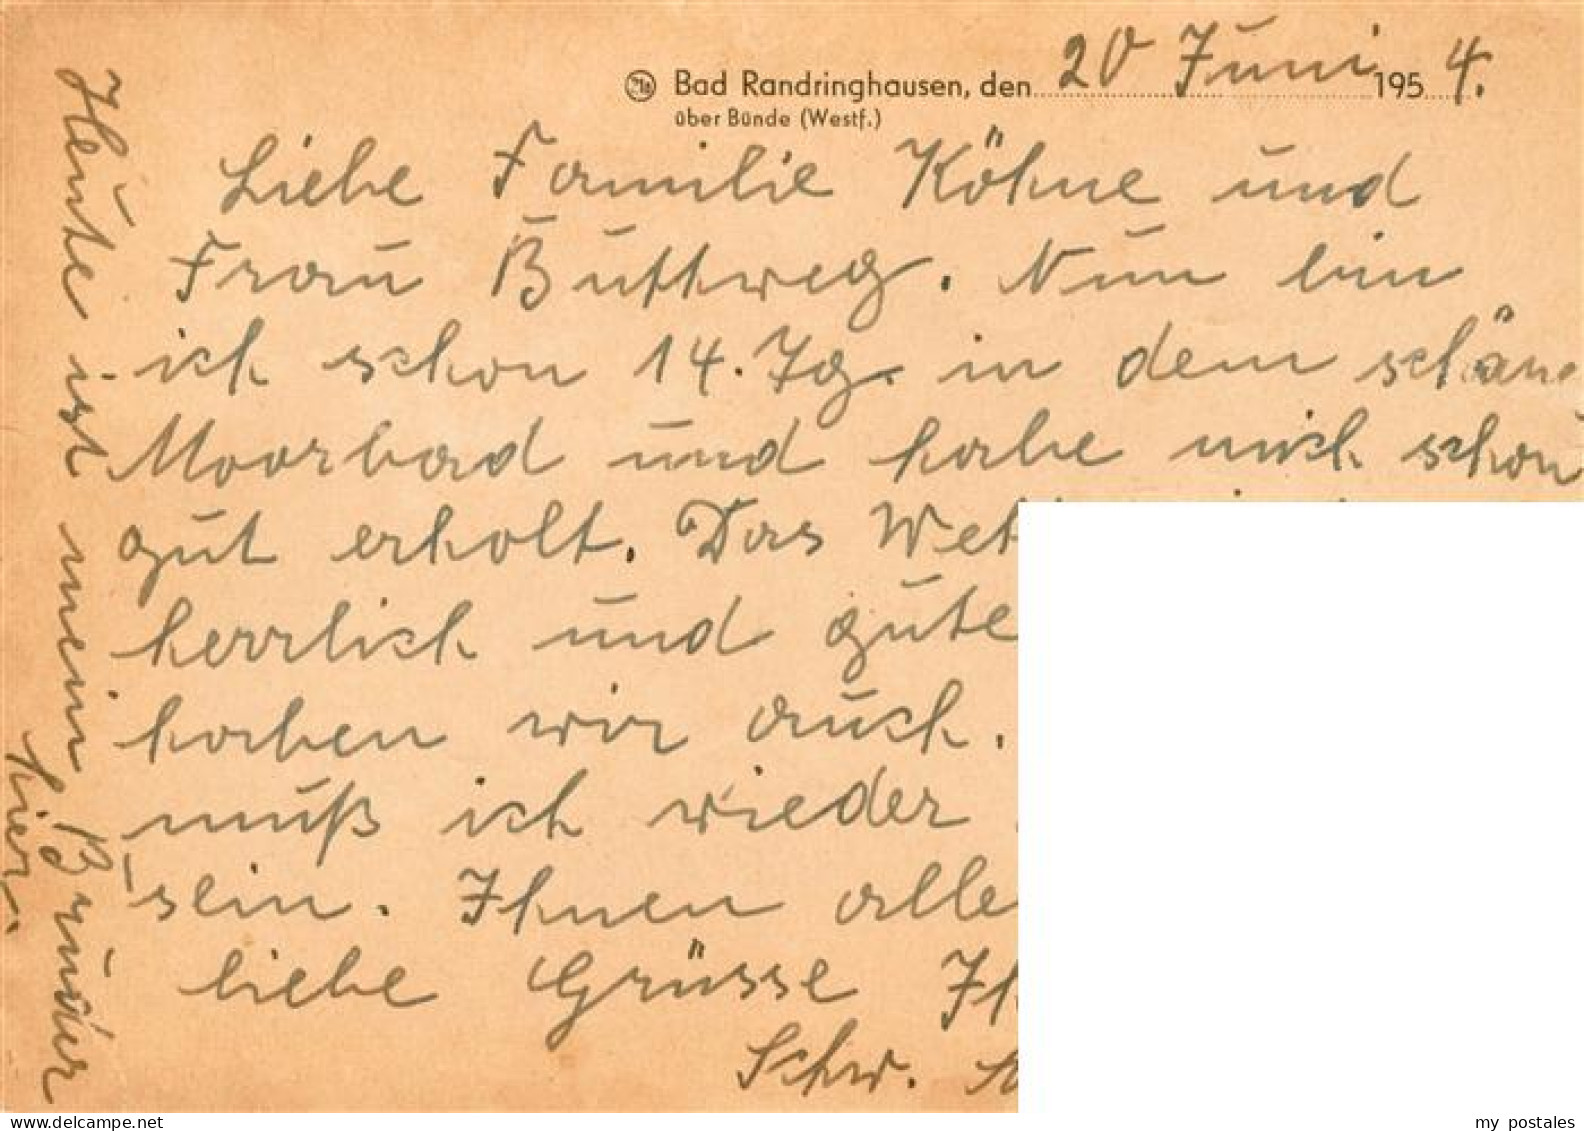 Bad Randringhausen, den 20 Juni 1954.
über Bünde (Westf.)
Liebe Familie Köhne und
Frau Buttweg. Nun bin
ich schon 14. Tg. in dem
Moorbad und habe mich schon
gut erholt. Das
herrlich und gute
haben wir auch.
muß ich wieder
sein. Ihnen alle
liebe Grüsse
Schw.
Heute ist mein Bruder
hier.
my postales
delcampe.net